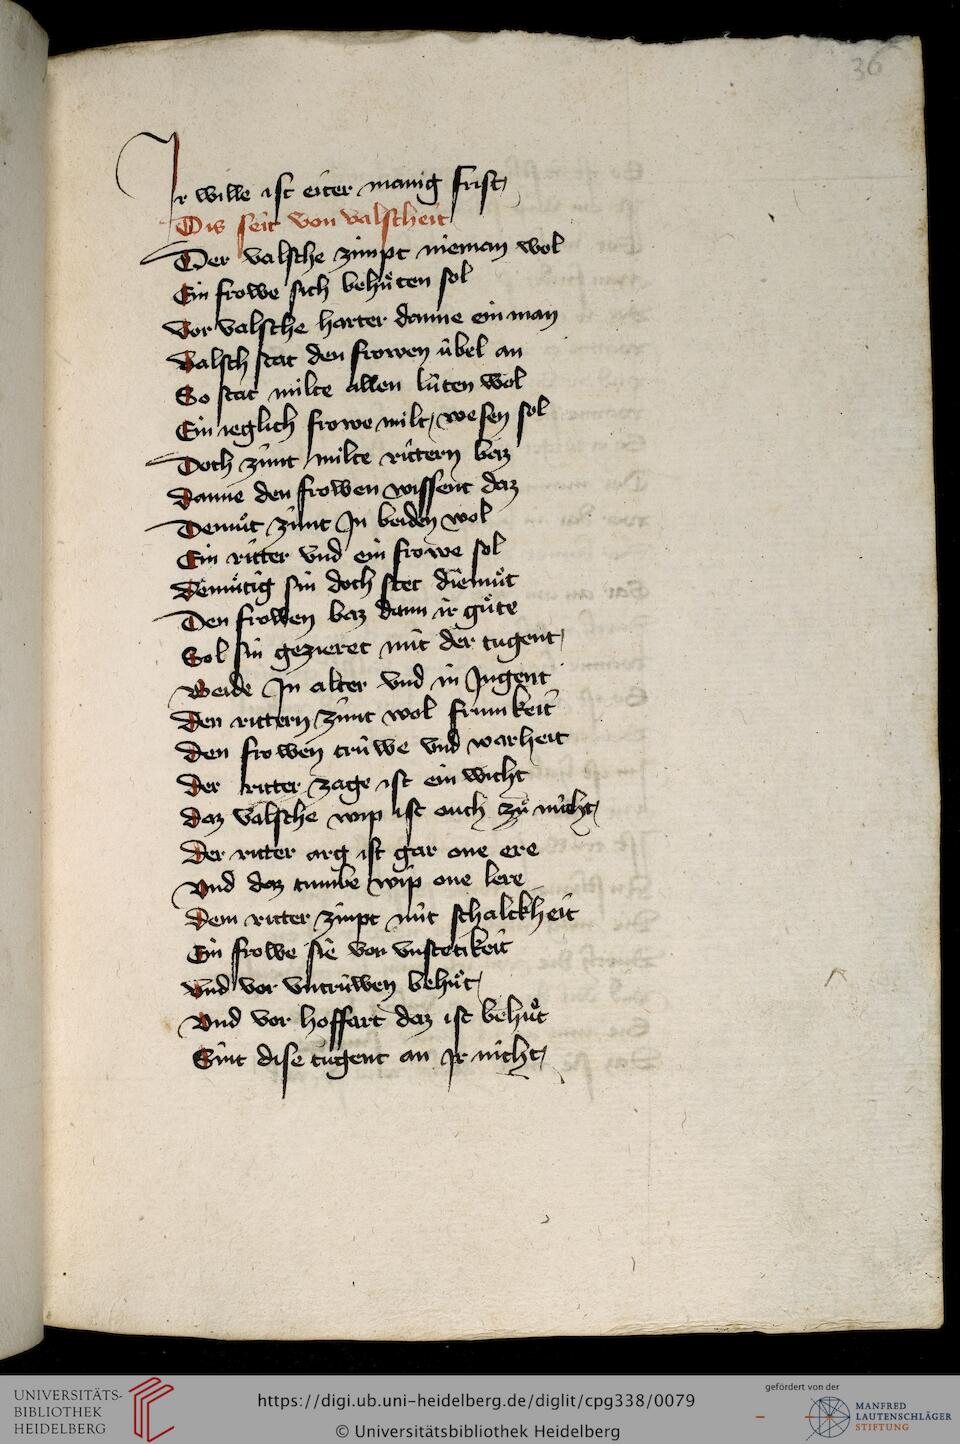 36
Ir wille ist eiter manig frist
Dis seit von valscheit
Der valsche zimpt nieman wol
Ein frowe sich behuͤten sol
Vor valsche harter danne ein man
Valsch stat den frowen úbel an
So stat milte allen lúten wol
Ein ieglich frowe milt wesen sol
Doch zimt milte rittern baz
danne den frowen wissent daz
Demuͤt zimt In beiden wol
Ein ritter vnd ein frowe sol
Demuͤtig sin doch stet diemuͤt
Den frowen baz dann ir guͤte
Sol sin gezieret mit der tugent
Beide In alter vnd in Jugent
Den rittern zimt wol frumkeit
Den frowen trúwe vnd warheit
Der ritter zage ist ein wicht
daz valsche wip ist ouch zuͦ nicht
Der ritter arg ist gar one ere
Vnd daz tumbe wip one lere
Dem ritter zimpt nit schalckheit
Ein frowe sie vor vnstetikeit
Vnd vor vntrúwen behuͤt
Vnd vor hoffart daz ist behuͤt
Sint dise tugent an Ir nicht
UNIVERSITÄTS-
BIBLIOTHEK
HEIDELBERG
https://digi.ub.uni-heidelberg.de/diglit/cpg338/0079
© Universitätsbibliothek Heidelberg
gefördert von der
MANFRED
LAUTENSCHLÄGER
STIFTUNG